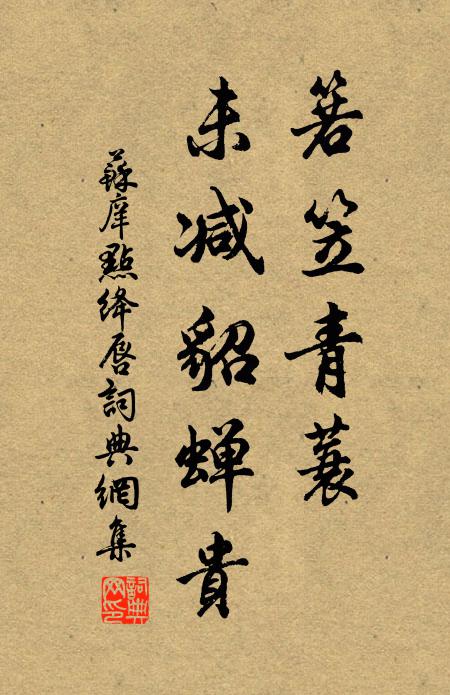 箬笠青蓑
未减貂蝉貴
蘇庠點絳唇詞典網集
詞典网印